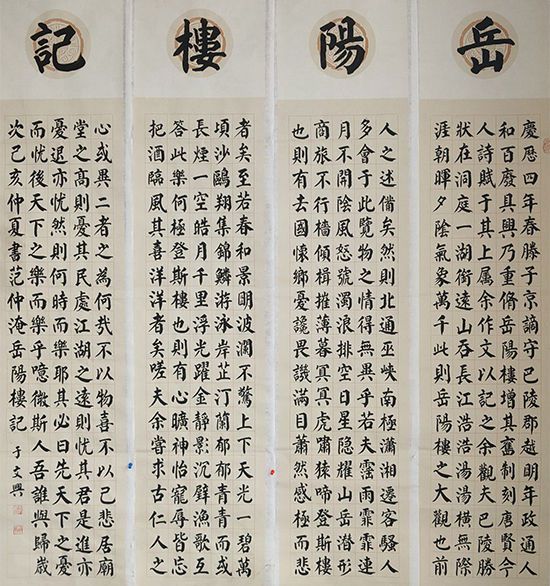 岳陽樓記
慶曆四年春滕子京謫守巴陵郡越明年政通人
和百廢具興乃重脩岳陽樓增其舊制刻唐賢今
人詩賦于其上屬余作文以記之余觀夫巴陵勝
狀在洞庭一湖銜遠山吞長江浩浩湯湯橫無際
涯朝暉夕陰氣象萬千此則岳陽樓之大觀也前
人之述備矣然則北通巫峽南極瀟湘遷客騷人
多會于此覽物之情得無異乎若夫霪雨霏霏連
月不開陰風怒號濁浪排空日星隱耀山岳潛形
商旅不行檣傾楫摧薄暮冥冥虎嘯猿啼登斯樓
也則有去國懷鄉憂讒畏譏滿目蕭然感極而悲
者矣至若春和景明波瀾不驚上下天光一碧萬
頃沙鷗翔集錦鱗游泳岸芷汀蘭郁郁青青而或
長煙一空皓月千里浮光躍金靜影沉璧漁歌互
答此樂何極登斯樓也則有心曠神怡寵辱皆忘
把酒臨風其喜洋洋者矣嗟夫余嘗求古仁人之
心或異二者之為何哉不以物喜不以己悲居廟
堂之高則憂其民處江湖之遠則忧其君是進亦
憂退亦忧然則何時而樂耶其必曰先天下之憂
而忧後天下之樂而樂乎噫微斯人吾誰與歸歲
次己亥仲夏書范仲淹岳陽樓記 于文興